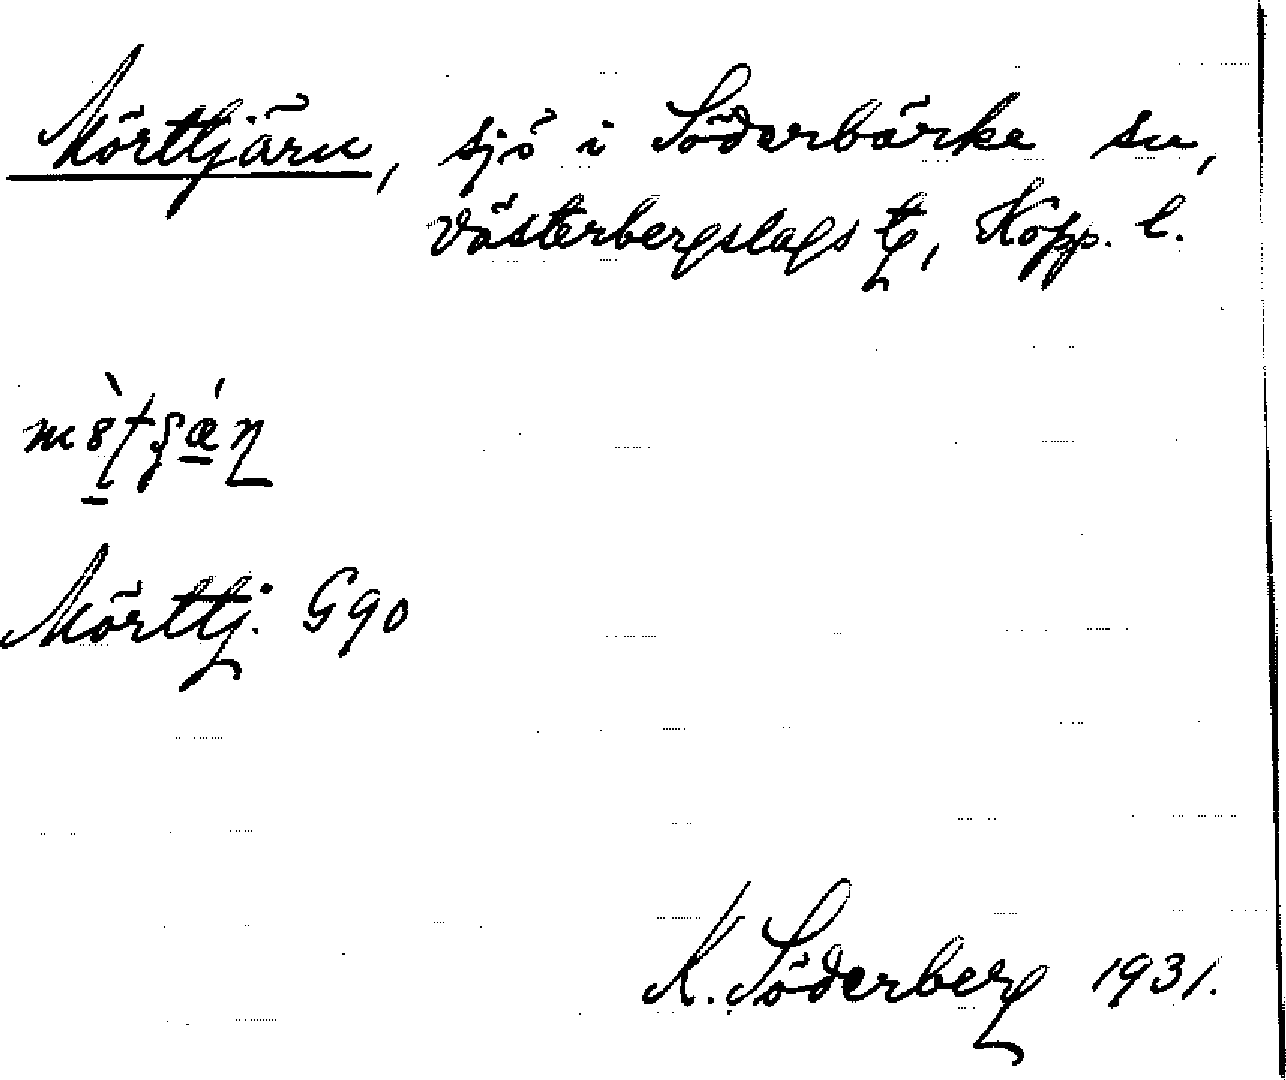 Mörttjärn, sjö i Söderbärke sn,
Västerbergslags tg, Kopp. l.
Mörttj. G90
K. Söderberg 1931.